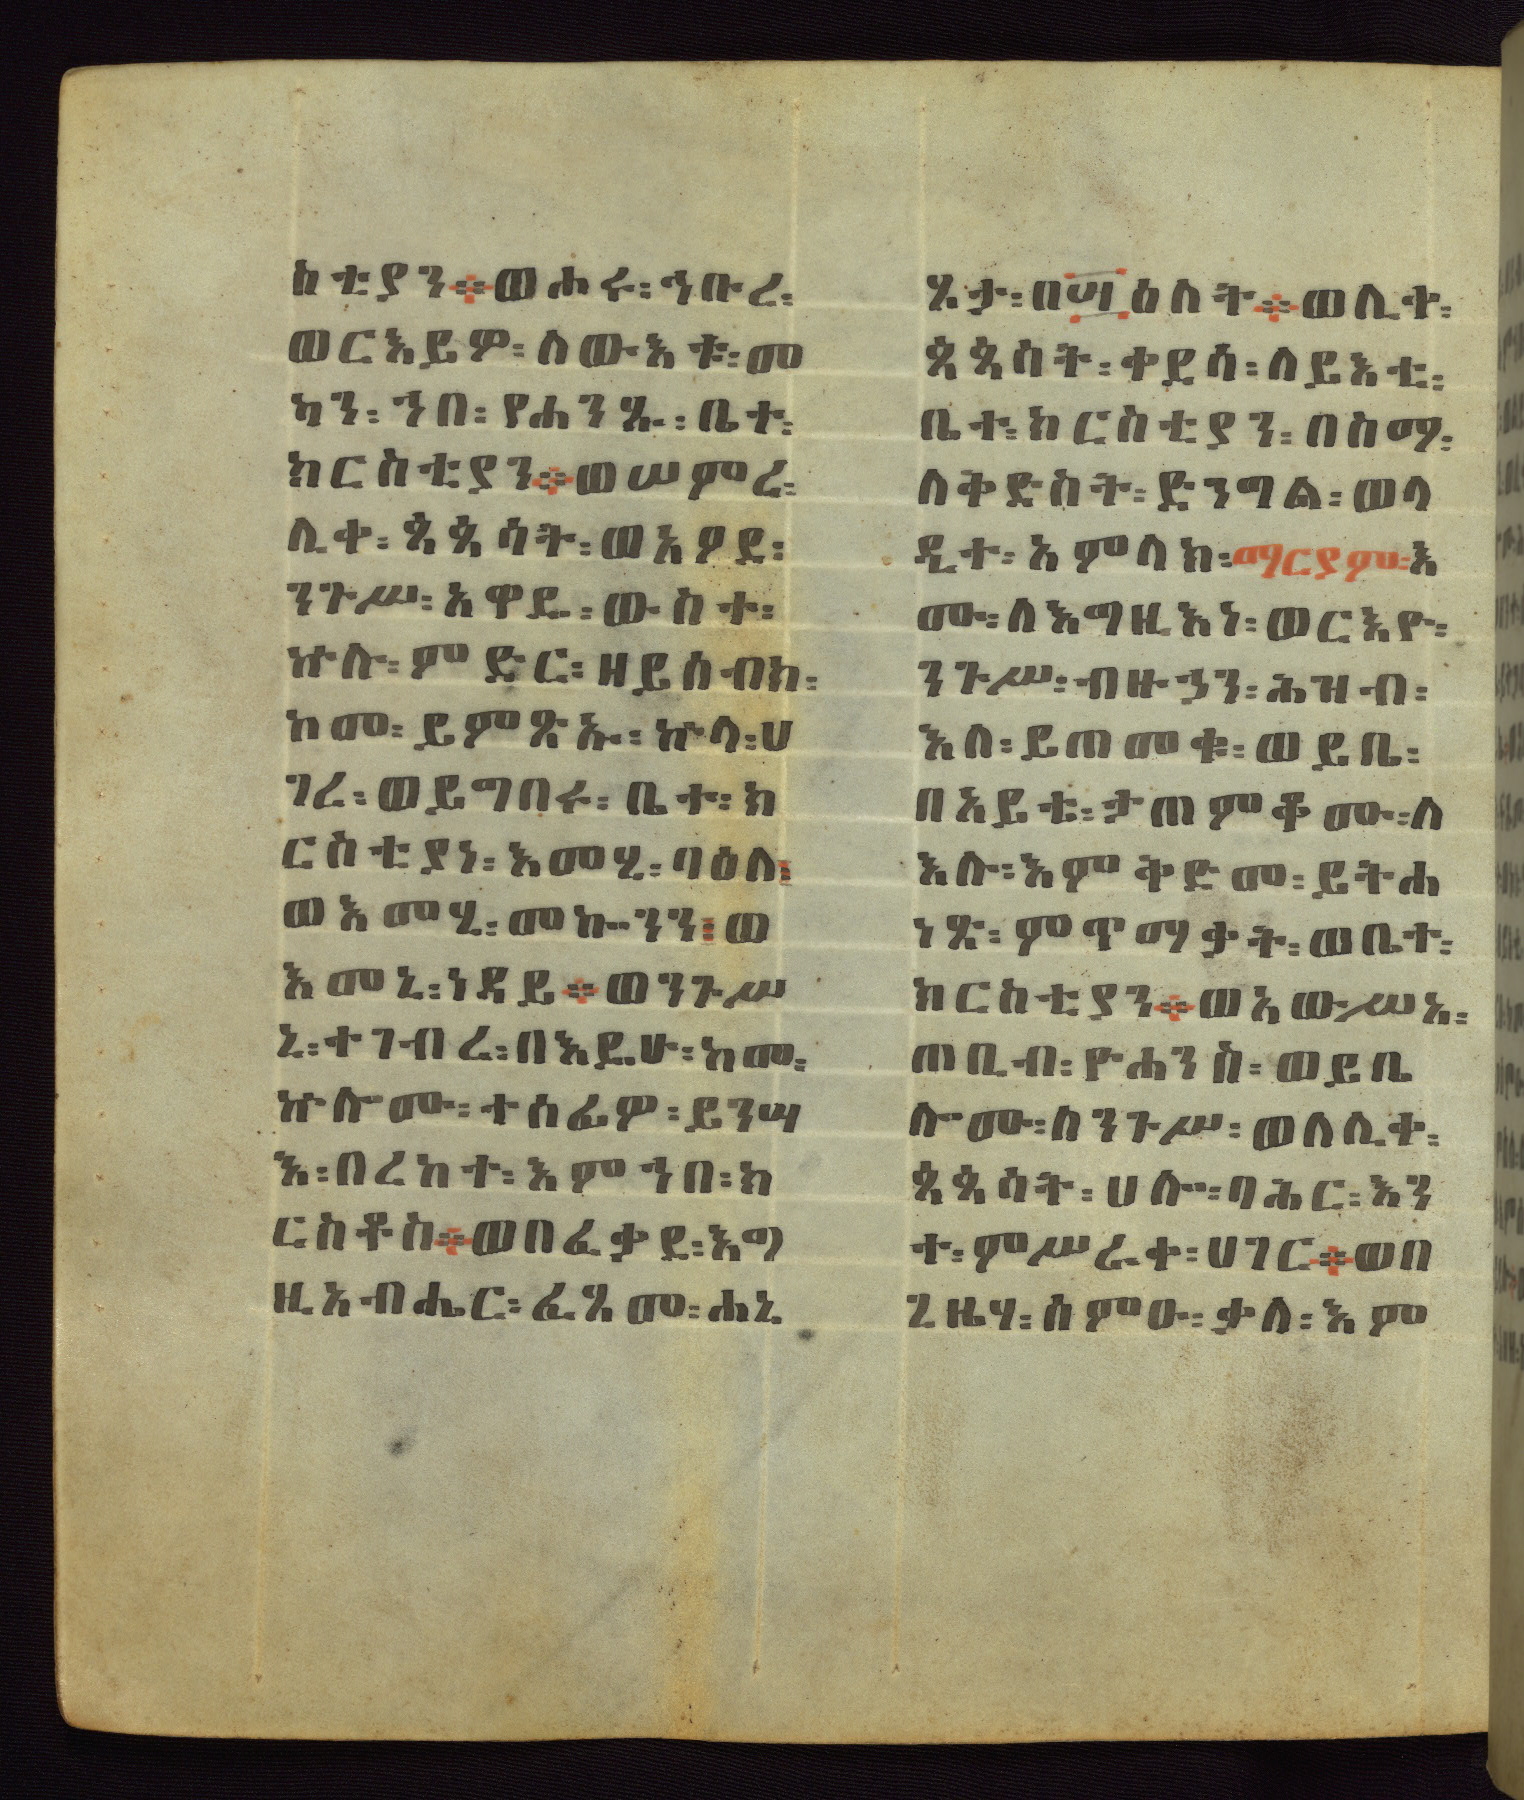 ስቲያን፨ወሐሩ፡ኀቡረ፡
ወርእይዎ፡ለውእቱ፡መ
ካን፡ኀበ፡የሐንፁ፡ቤተ፡
ክርስቲያን፨ወሠምረ፡
ሊቀ፡ጳጳሳት፡ወአዖደ፡
ንጉሥ፡አዋደ፡ውስተ፡
ኵሉ፡ምድር፡ዘይሰብክ፡
ከመ፡ይምጽኡ፡ኵላ፡ሀ
ገረ፡ወይግበሩ፡ቤተ፡ክ
ርስቲያነ፡እመሂ፡ባዕል፡
ወእመሂ፡መኰንን፡ወ
እመኒ፡ነዳይ፨ወንጉሥ
ኒ፡ተገብረ፡በእደሁ፡ከመ፡
ኵሎሙ፡ተሰፊዎ፡ይንሣ
እ፡በረከተ፡እምኀበ፡ክ
ርስቶስ፨ወበፈቃደ፡እግ
ዚአብሔር፡ፈጸመ፡ሐኒ
ፄታ፡በሣዕስት፨ወሊቀ፡
ጳጳስት፡ቀደሳ፡ለይእቲ፡
ቤተ፡ክርስቲያን፡በስማ፡
ለቅድስት፡ድንግል፡ወላ
ዲተ፡አምላክ፡ማርያም፡እ
ሙ፡ለእግዚእነ፡ወርእዮ፡
ንጉሥ፡ብዙኃን፡ሕዝብ፡
እለ፡ይጠመቁ፡ወይቤ፡
በአይቴ፡ታጠምቆሙ፡ለ
እሉ፡እምቅድመ፡ይትሐ
ነፅ፡ምጥማቃት፡ወቤተ፡
ክርስቲያን፨ወአውሥአ፡
ጠቢብ፡ዮሐንስ፡ወይቤ
ሎሙ፡ለንጉሥ፡ወለሊቀ፡
ጳጳሳት፡ሀሎ፡ባሕር፡እን
ተ፡ምሥራቀ፡ሀገር፨ወበ
ጊዜሃ፡ሰምዑ፡ቃለ፡እም